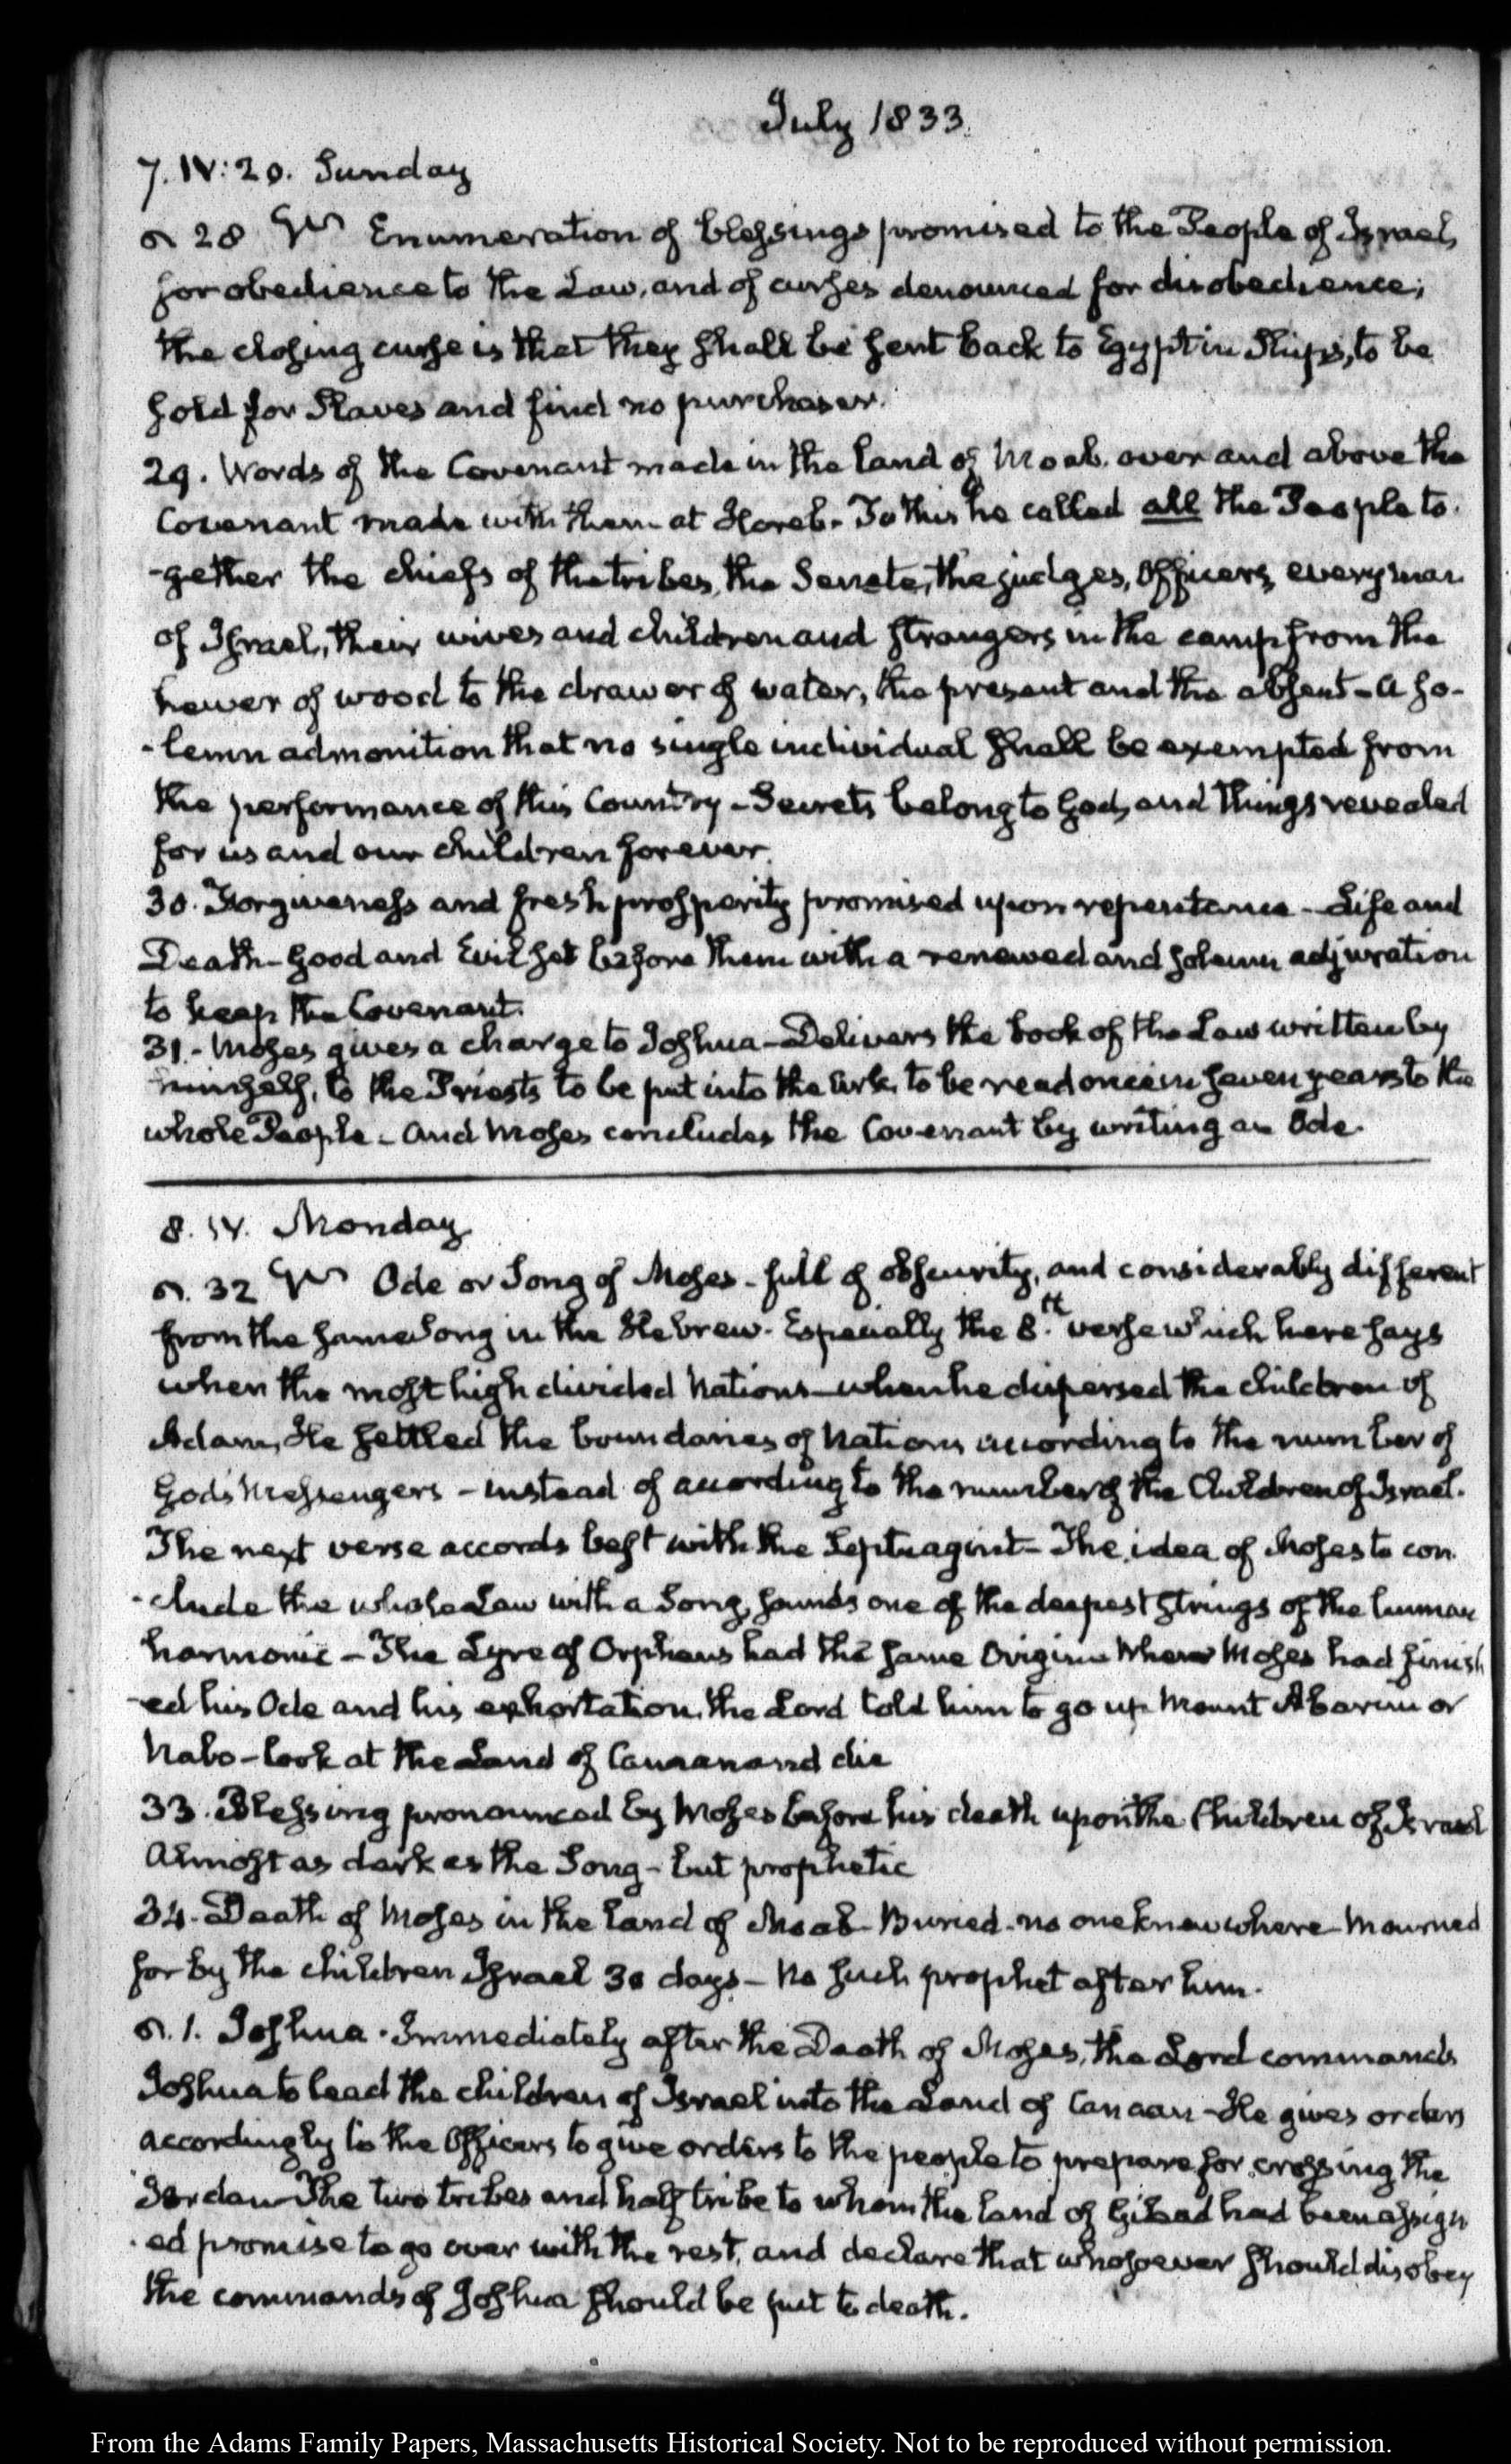 July 1833.
7. IV:20. Sunday
28 Enumeration of blessings promised to the People of Israel,
for obedience to the Law, and of curses denounced for disobedience;
the closing curse is that they shall be sent back to Egypt in Ships, to be
sold for Slaves and find no purchaser.
29. Words of the Covenant made in the land of Moab. over and above the
Covenant made with them at Horeb- To this he called all the People to-
-gether the chiefs of the tribes, the Senate, the judges, Officers, every man
of Israel, their wives and children and strangers in the camp from the
hewer of wood to the drawer of water, the present and the absent - a so-
-lemn admonition that no single individual shall be exempted from
the performance of this Country - Secrets belong to God, and things revealed
for us and our children forever.
30. Forgiveness and fresh prosperity promised upon repentance - Life and
Death - Good and Evil set before them with a renewed and solemn adjuration
to keep the Covenant.
31.- Moses gives a charge to Joshua - Delivers the book of the Law written by
himself, to the Priests to be put into the Ark, to be read once in seven years to the
whole People - And Moses concludes the Covenant by writing an Ode.
8. IV. Monday
32 Ode or Song of Moses - full of obscurity, and considerably different
from the same Song in the Hebrew. Especially the 8.th verse which here says
when the most high divided Nations - when he dispersed the children of
Adam, He settled the boundaries of Nations according to the number of
Gods Messengers - instead of according to the number of the Children of Israel.
The next verse accords best with the Septuagint - The idea of Moses to con-
-clude the whole Law with a Song, sounds one of the deepest strings of the human
harmonic - The Lyre of Orpheus had the same Origin. When Moses had finish
-ed his Ode and his exhortation, the Lord told him to go up Mount Abarim or
Nabo - look at the Land of Canaan and die
33. Blessing pronounced by Moses before his death upon the Children of Israel
Almost as dark as the Song - but prophetic
34. Death of Moses in the land of Moab - Buried - no one knew where - Mourned
for by the children Israel 30 days - No such prophet after him.
1. Joshua. Immediately after the Death of Moses, the Lord commands
Joshua to lead the children of Israel into the Land of Canaan - He gives orders
accordingly to the Officers to give orders to the people to prepare for crossing the
Jordan - The two tribes and half tribe to whom the land of Gilead had been assign
-ed promise to go over with the rest, and declare that whosoever should disobey
the commands of Joshua should be put to death.
From the Adams Family Papers, Massachusetts Historical Society. Not to be reproduced without permission.